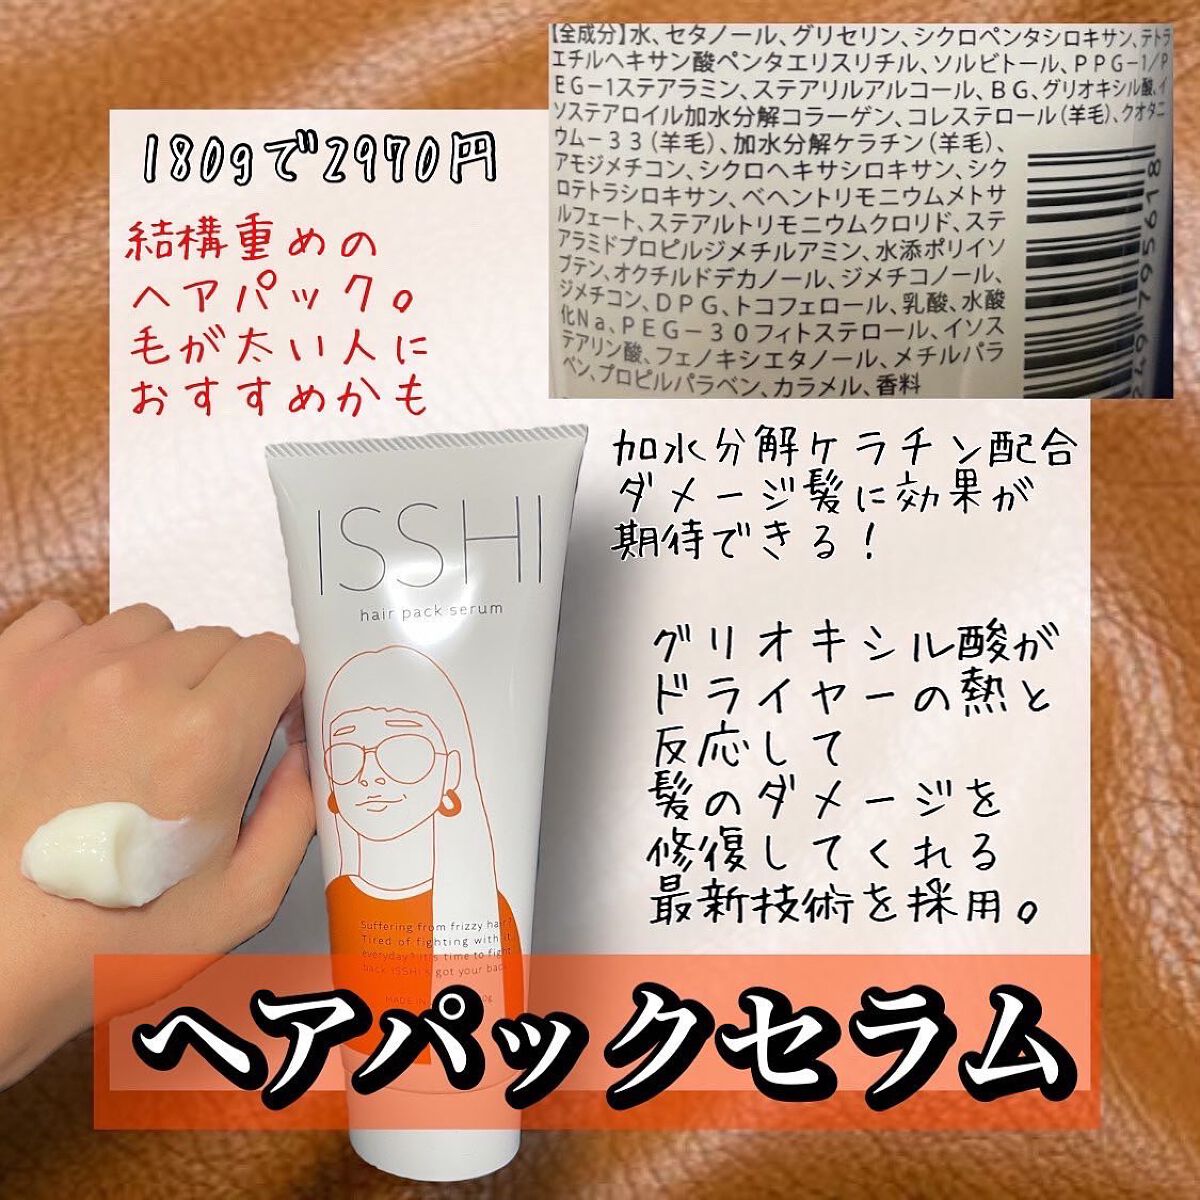 180gで2970円
結構重めの
ヘアパック。
毛が太い人に
おすすめかも
【全成分】水、セタノール、グリセリン、シクロペンタシロキサン、テトラ
エチルヘキサン酸ペンタエリスリチル、ソルビトール、PPG-1/P
EG-1ステアラミン、ステアリルアルコール、BG、グリオキシル酸、イ
ソステアロイル加水分解コラーゲン、コレステロール(羊毛)、クオタニ
ウム-33(羊毛)、加水分解ケラチン(羊毛)、
アモジメチコン、シクロヘキサシロキサン、シク
ロテトラシロキサン、ベヘントリモニウムメトサ
ルフェート、ステアルトリモニウムクロリド、ステ
アラミドプロピルジメチルアミン、水添ポリイソ
ブテン、オクチルドデカノール、ジメチコノール、
ジメチコン、DPG、トコフェロール、乳酸、水酸
化Na、PEG-30フィトステロール、イソス
テアリン酸、フェノキシエタノール、メチルパラ
ベン、プロピルパラベン、カラメル、香料
加水分解ケラチン配合
ダメージ髪に効果が
期待できる!
グリオキシル酸が
ドライヤーの熱と
反応して
髪のダメージを
修復してくれる
最新技術を採用。
ISSHI
hair pack serum
Suffering from frizzy hair?
Tired of fighting with it
everyday? it's time to fight
back ISSHI's got your back
MADE IN
ヘアパックセラム